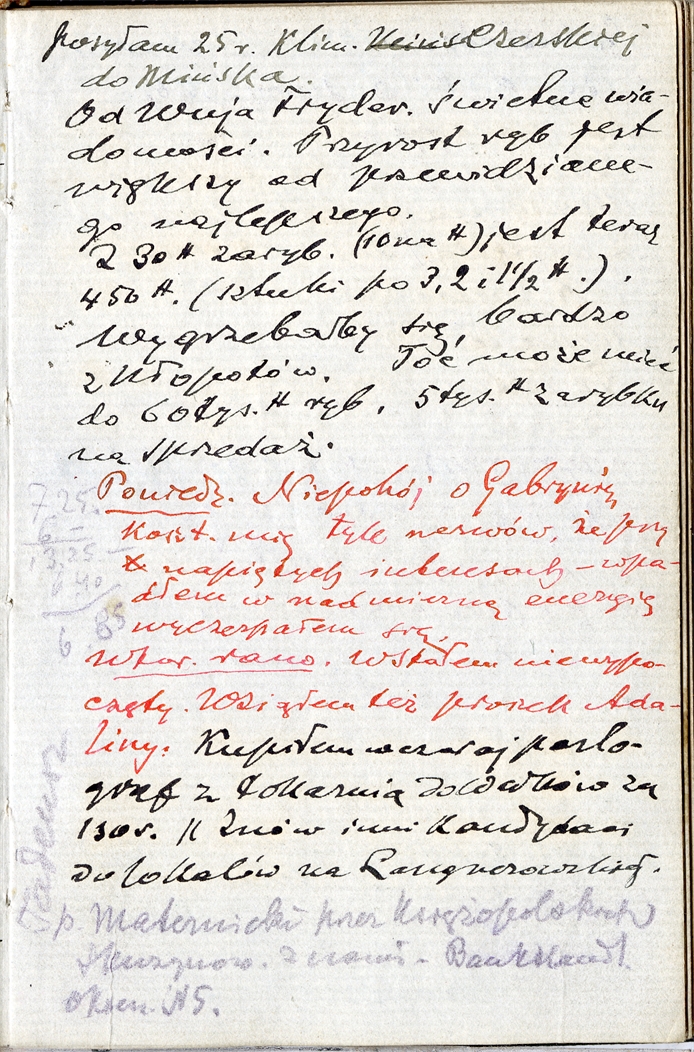 posyłam 25 r. Klim. Czerskiej
do Mińska.
Od Wuja Fryder. świetne wia-
domości. Przyrost ryb jest
większy od przewidziane-
go najlepszego.
Z 30 ℔ zaryb. (10 na ℔) jest teraz
450 ℔. (sztuki po 3, 2 i 1 1/2 ℔.).
Wygrzebałby się bardzo
z kłopotów. Toć może mieć
do 60 tys. ℔ ryb, 5 tys. ℔ zarybku
na sprzedaż.
Poniedz. Niepokój o Gabrynię
koszt. mię tyle nerwów, że przy
napiętych interesach – wpa-
dłem w nadmierną energię
wyczerpałem się.
Wtor. rano. Wstałem niewypo-
częty. Wziąłem też proszek Ada-
liny. Kupiłem wczoraj parlo-
graf z tokarnią do wałków za
130 r. // Znów inni kandydaci
do lokalów na Langnerowskiej.
p. Maternicki przez Księżopolskich
znami - Bank Handl.
okien. N 5.
7 25.
6 –
13.25
6 40
6 85
Tadeusz